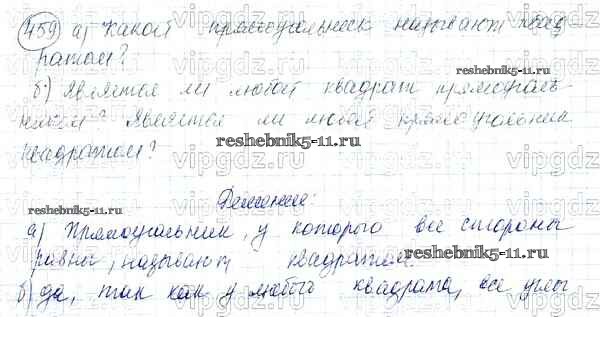 459 а) Какой прямоугольник называют квад
ратом?
б) Является ли любой квадрат прямоуголь
ником? Является ли любой прямоугольник
квадратом?
Решение:
а) Прямоугольник, у которого все стороны
равны, называют квадратом.
б) да, так как у любого квадрата, все углы
reshebnik5-11.ru
reshebnik5-11.ru
reshebnik5-11.ru
reshebnik5-11.ru
vipgdz.ru